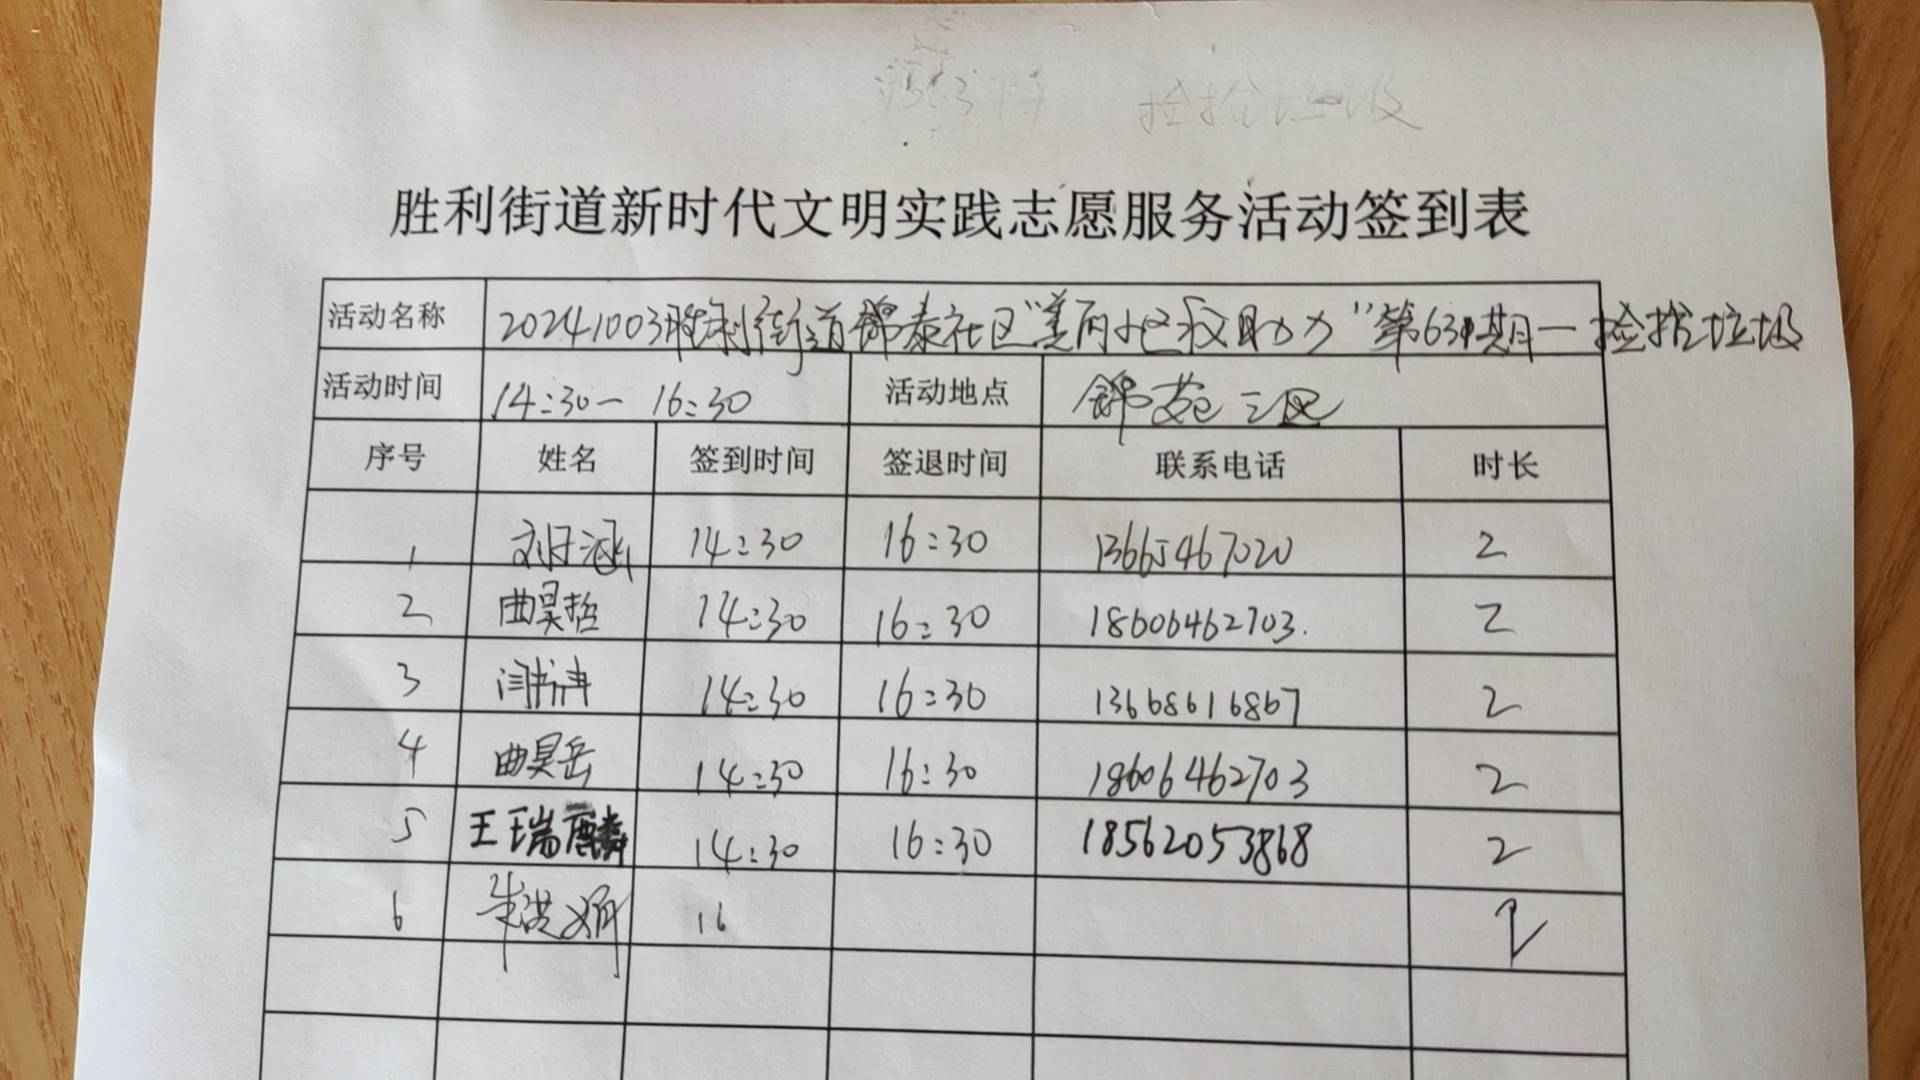 捡拾垃圾
胜利街道新时代文明实践志愿服务活动签到表
活动名称 20241003胜利街道锦泰社区"美丽小区我助力"第63期一捡拾垃圾
活动时间 14:30一 16:30 活动地点 锦苑三区
序号 姓名 签到时间 签退时间 联系电话 时长
1 刘子涵 14:30 16:30 13665467020 2
2 曲昊哲 14:30 16:30 18606462703. 2
3 14:30 16:30 13668616867 2
4 曲昊岳 14:30 16:30 18606462703 2
5 王瑞麟 14:30 16:30 18562053868 2
6 朱洪娟 16